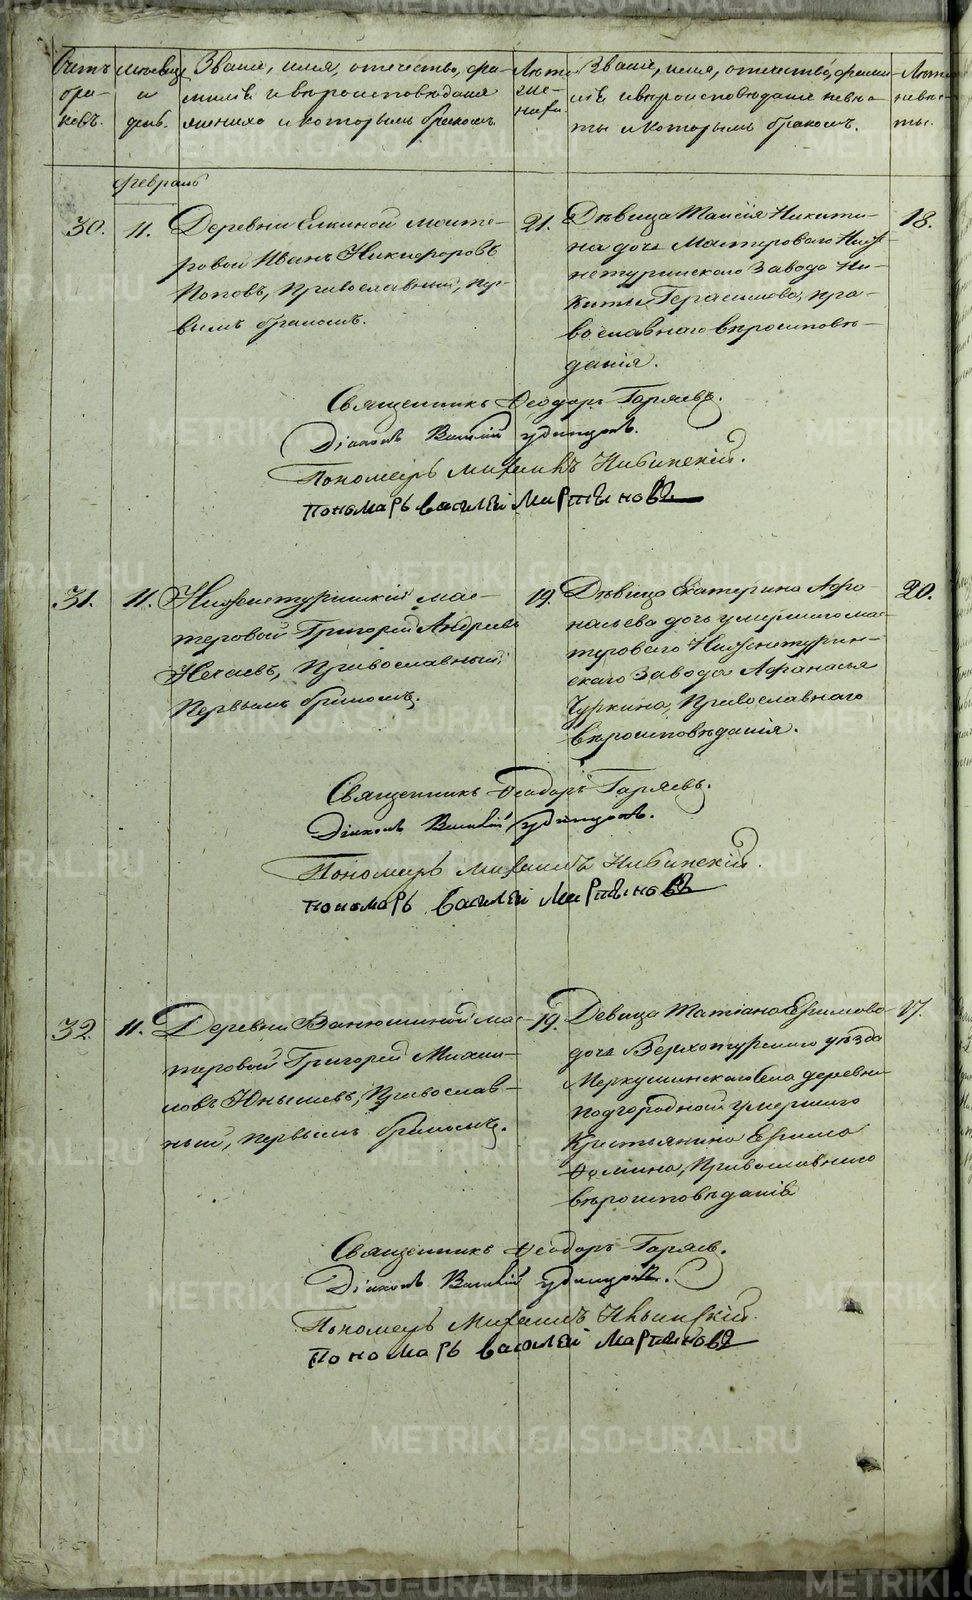 Счетъ бра- ковъ.
Месяцъ и день.
Званіе, имя, отечество, фа-
миліе и вероисповеданіе
жениха и которымъ бракомъ.
Лета же- ниха
Званіе, имя, отечество, фами-
ліе и вероисповеданіе невес-
ты и которымъ бракомъ.
Лета невес- ты.
Февраль
30.
11.
Деревни Елкиной масте-
ровой Иванъ Никифоровъ
Поповъ, Православный, пер-
вымъ бракомъ.
21.
Девица Таисія Никити-
на дочь Мастероваго Ниж-
нетуринскаго Завода Ни-
киты Герасимова, пра-
вославнаго вероисповѣ-
данія.
18.
Священникъ Ѳеодоръ Гаряевъ.
Діаконъ Василій Удинцовъ.
Пономарь Михаилъ Ильинскій.
Пономарь Василей Мартыновъ
31.
11.
Нижнетуринскій мас-
теровой Григорей Андреевъ
Нехаевъ, Православный,
Первымъ бракомъ.
19.
Девица Екатерина Афа-
насьева дочь умершаго мас-
тероваго Нижнетурин-
скаго Завода Афанасья
Чуркина, Православнаго
вѣроисповѣданія.
20.
Священникъ Ѳеодоръ Гаряевъ.
Діаконъ Василій Удинцовъ.
Пономарь Михаилъ Ильинскій.
Пономарь Василей Мартыновъ
32.
11.
Деревни Ванюшиной мас-
теровой Григорей Михаи-
ловъ Юнышевъ, Православ-
ный, первымъ бракомъ.
19.
Девица Татіана Ефимова
дочь Верхотурскаго уѣзда
Меркушинскаго Села деревни
Подгородной умершаго
Крестьянина Ефима
Ѳомина, Православнаго
вѣроисповѣданія
17.
Священникъ Ѳеодоръ Гаряев.
Діаконъ Василій Удинцовъ.
Пономарь Михаилъ Ильинскій.
Пономарь Василей Мартыновъ
METRIKI.GASO-URAL.RU